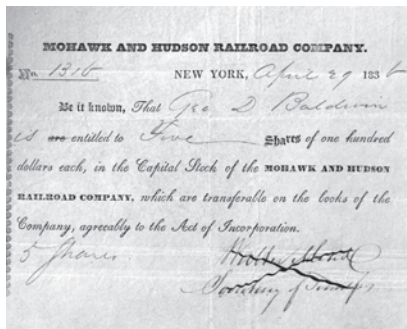 MOHAWK AND HUDSON RAILROAD COMPANY.
No. 1316 NEW YORK, April 29 1836
Be it known, That Geo D Baldwin
is are entitled to Five Shares of one hundred
dollars each, in the Capital Stock of the MOHAWK AND HUDSON
RAILROAD COMPANY, which are transferable on the books of the
Company, agreeably to the Act of Incorporation.
5 Shares
Secretary of